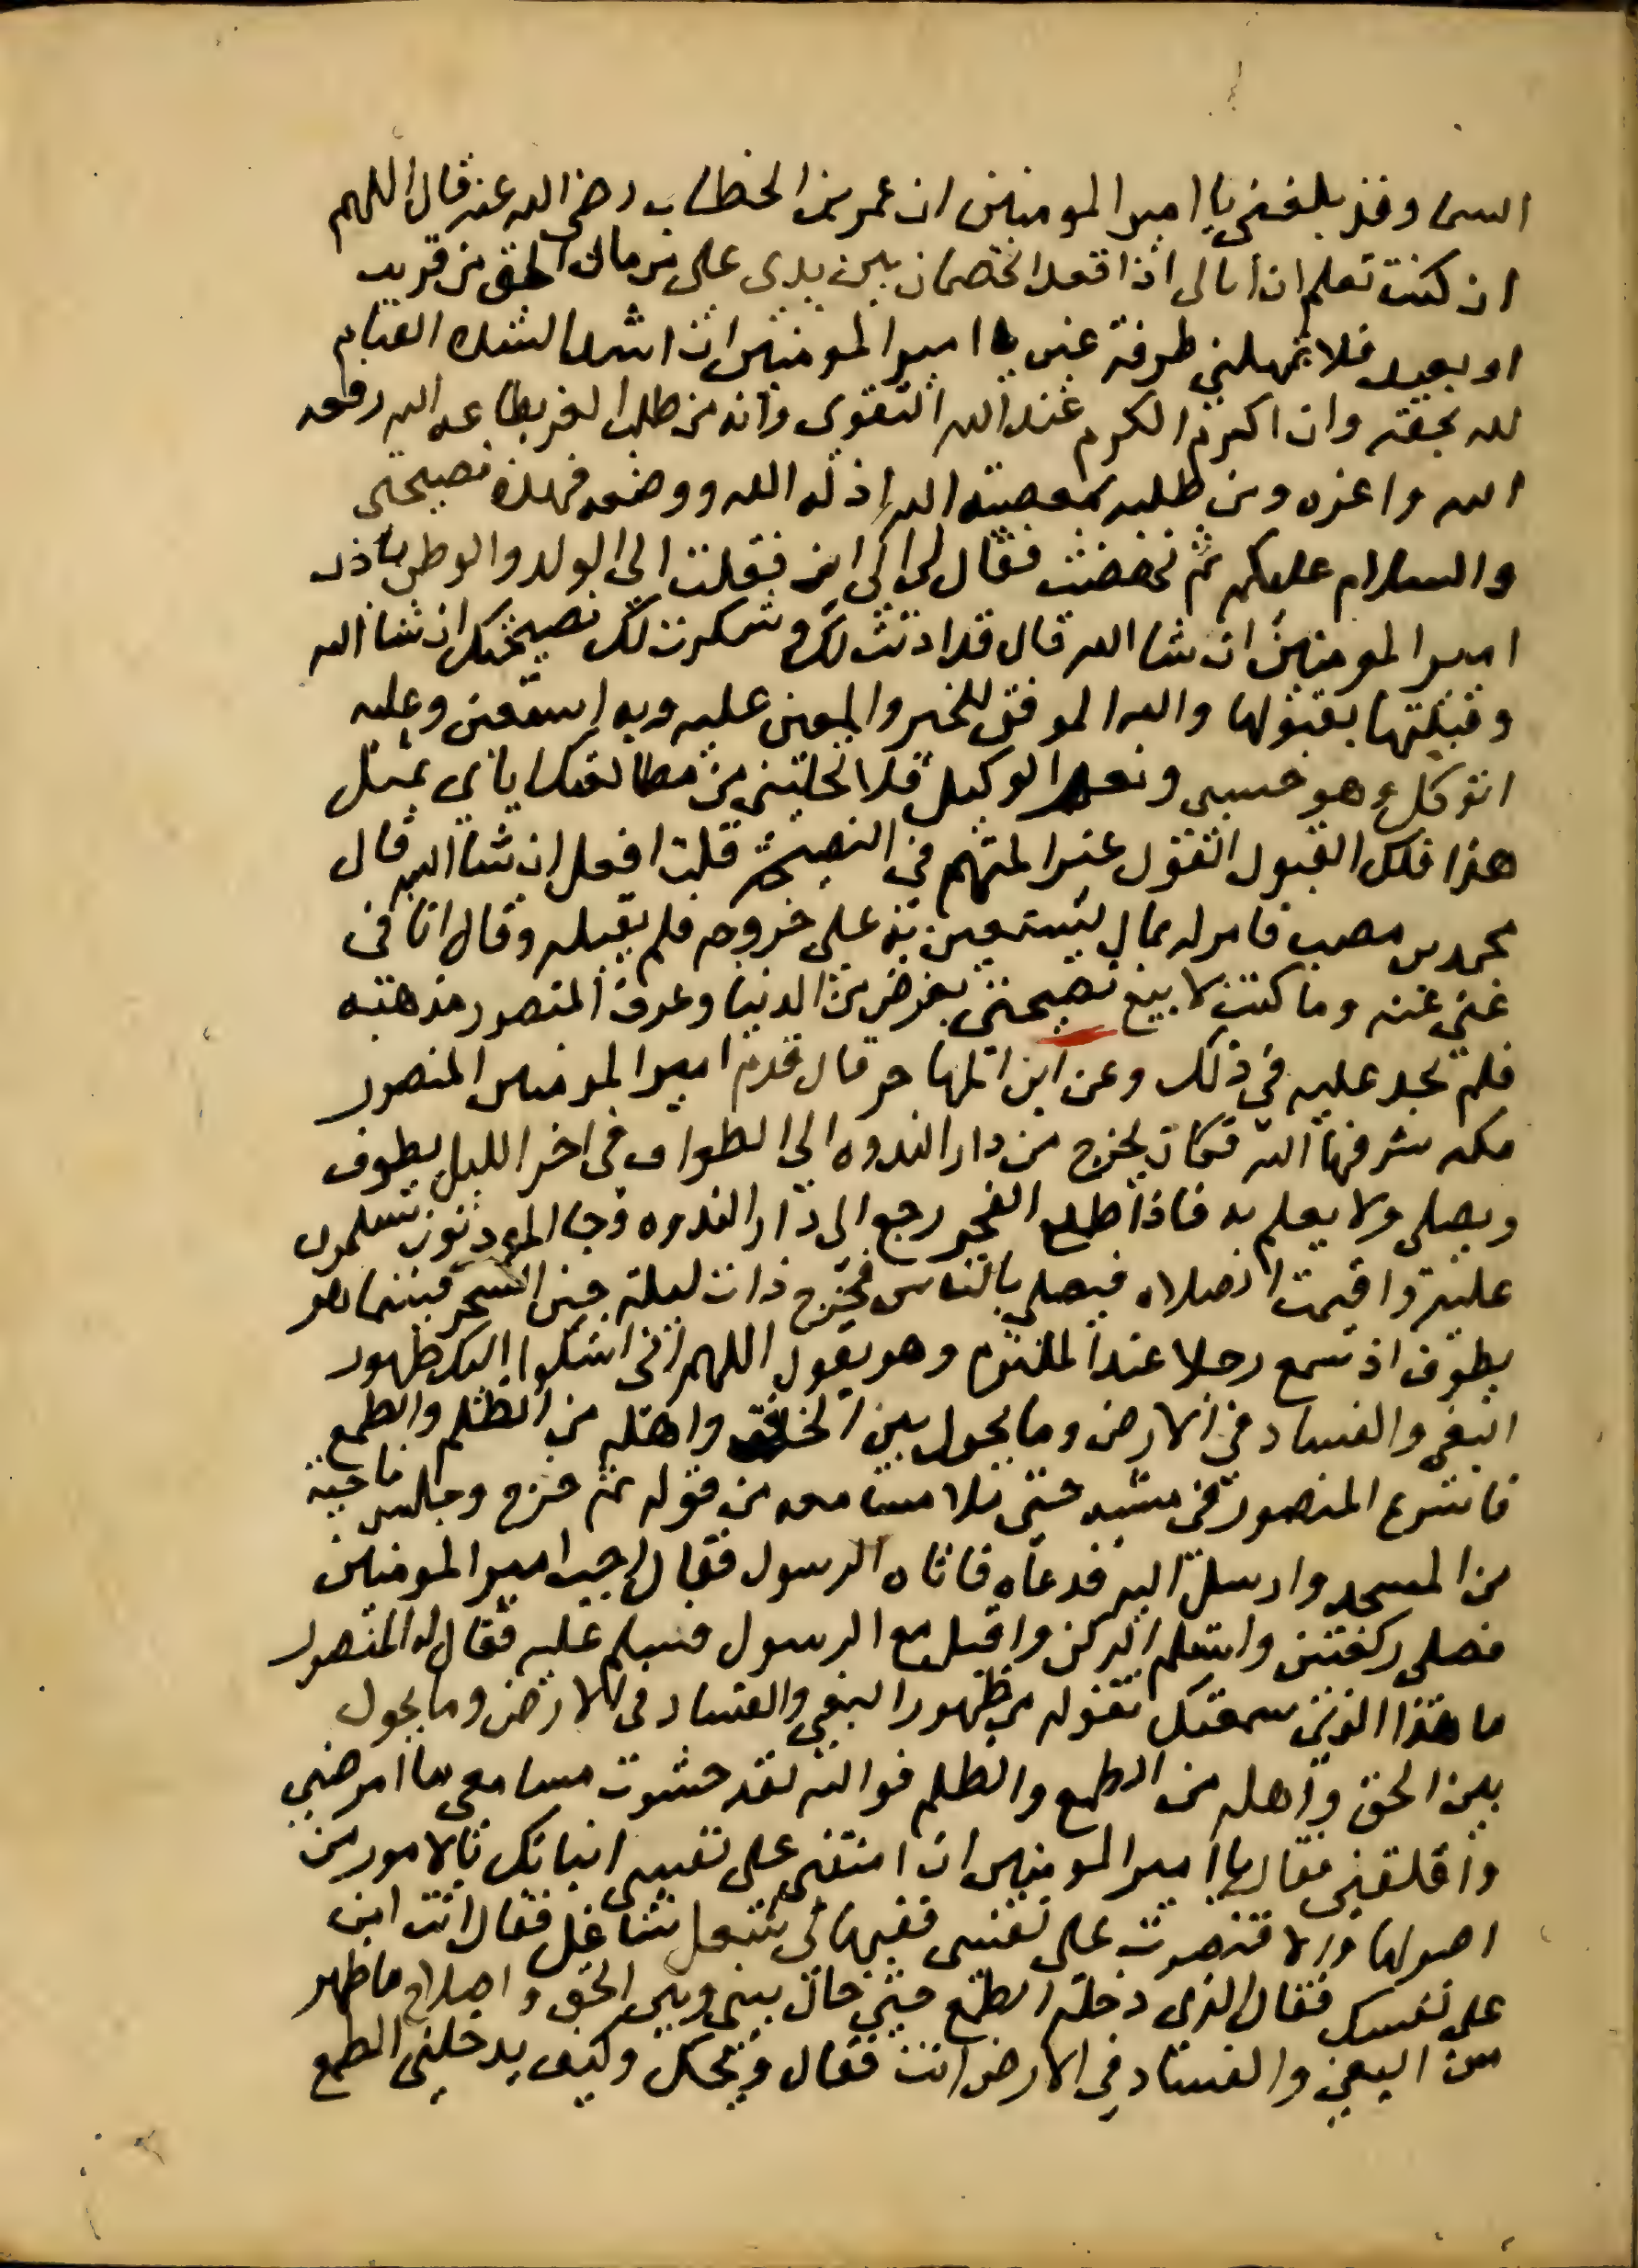 السى وقد بلغنى يا امير المومنين ان عمر بن الخطاب رضى الله عنه قال اللهم
ان كنت تعلم ان ابالى اذا قعد الخصمان بين يدى على من مال الحق من قريب
او بعيد فلا تمهلنى طرفة عين يا امير المومنين ان اشد الشده القيام
لله بحقه وان اكرم الكرم عند الله التقوى وانه من طلب العز بطاعه الله رفعه
الله واعزه ومن طلبه بمعصية الله اذله الله ووضعه فهذه نصيحتى
والسلام عليكم ثم نهضت فقال لى الى اين فقلت الى الولد والوطن باذن
امير المومنين ان شا الله قال قد اذنت لك وشكرت لك نصيحتك ان شا الله
وقبلتها بقبولها والله الموفق للخير والمعين عليه وبه استعين وعليه
اتوكل وهو حسبى ونعم الوكيل فلا تخلينى من مطالعتك اياى بمثل
هذا فلك القبول القول غير المتهم فى النصيحة قلت افعل ان شا الله قال
محمد بن مصعب فامر له بمال يستعين به على خروجه فلم يقبله وقال انا فى
غنى عنه وما كنت لابيع نصيحتى بعرض من الدنيا وعرف المنصور مذهبه
فلم يجد عليه فى ذلك وعن ابن المهاجر قال قدم امير المومنين المنصور
مكه شرفها الله فكان يخرج من دار الندوه الى الطواف فى اخر الليل يطوف
ويصلى ولا يعلم به فاذا طلع الفجر رجع الى دار الندوه وجا الموذنون يسلمون
عليه واقيمت الصلاه فيصلى بالناس فخرج ذات ليلة حين السحر فبينما هو
يطوف اذ سمع رجلا عند الملتزم وهو يقول اللهم انى اشكوا اليك ظهور
البغى والفساد فى الارض وما يحول بين الحق واهله من الظلم والطمع
فاسرع المنصور فى مشيه حتى ملا مسامعه من قوله ثم خرج وجلس ناحية
من المسجد وارسل اليه فدعاه فاتاه الرسول فقال اجب امير المومنين
فصلى ركعتين واستلم الركن واقبل مع الرسول فسلم عليه فقال له المنصور
ما هذا الذى سمعتك تقوله من ظهور البغى والفساد فى الارض وما يحول
بين الحق واهله من الطمع والظلم فوالله لقد حشوت مسامعى ما امرضنى
واقلقنى فقال يا امير المومنين ان امنتنى على نفسى انباتك بالامور من
اصولها والا اقتصرت على نفسى ففيها لى شغل شاغل فقال انت امن
على نفسك فقال الذى دخله الطمع حتى حال بينه وبين الحق واصلاح ما ظهر
من البغى والفساد فى الارض انت فقال ويحك وكيف يدخلنى الطمع